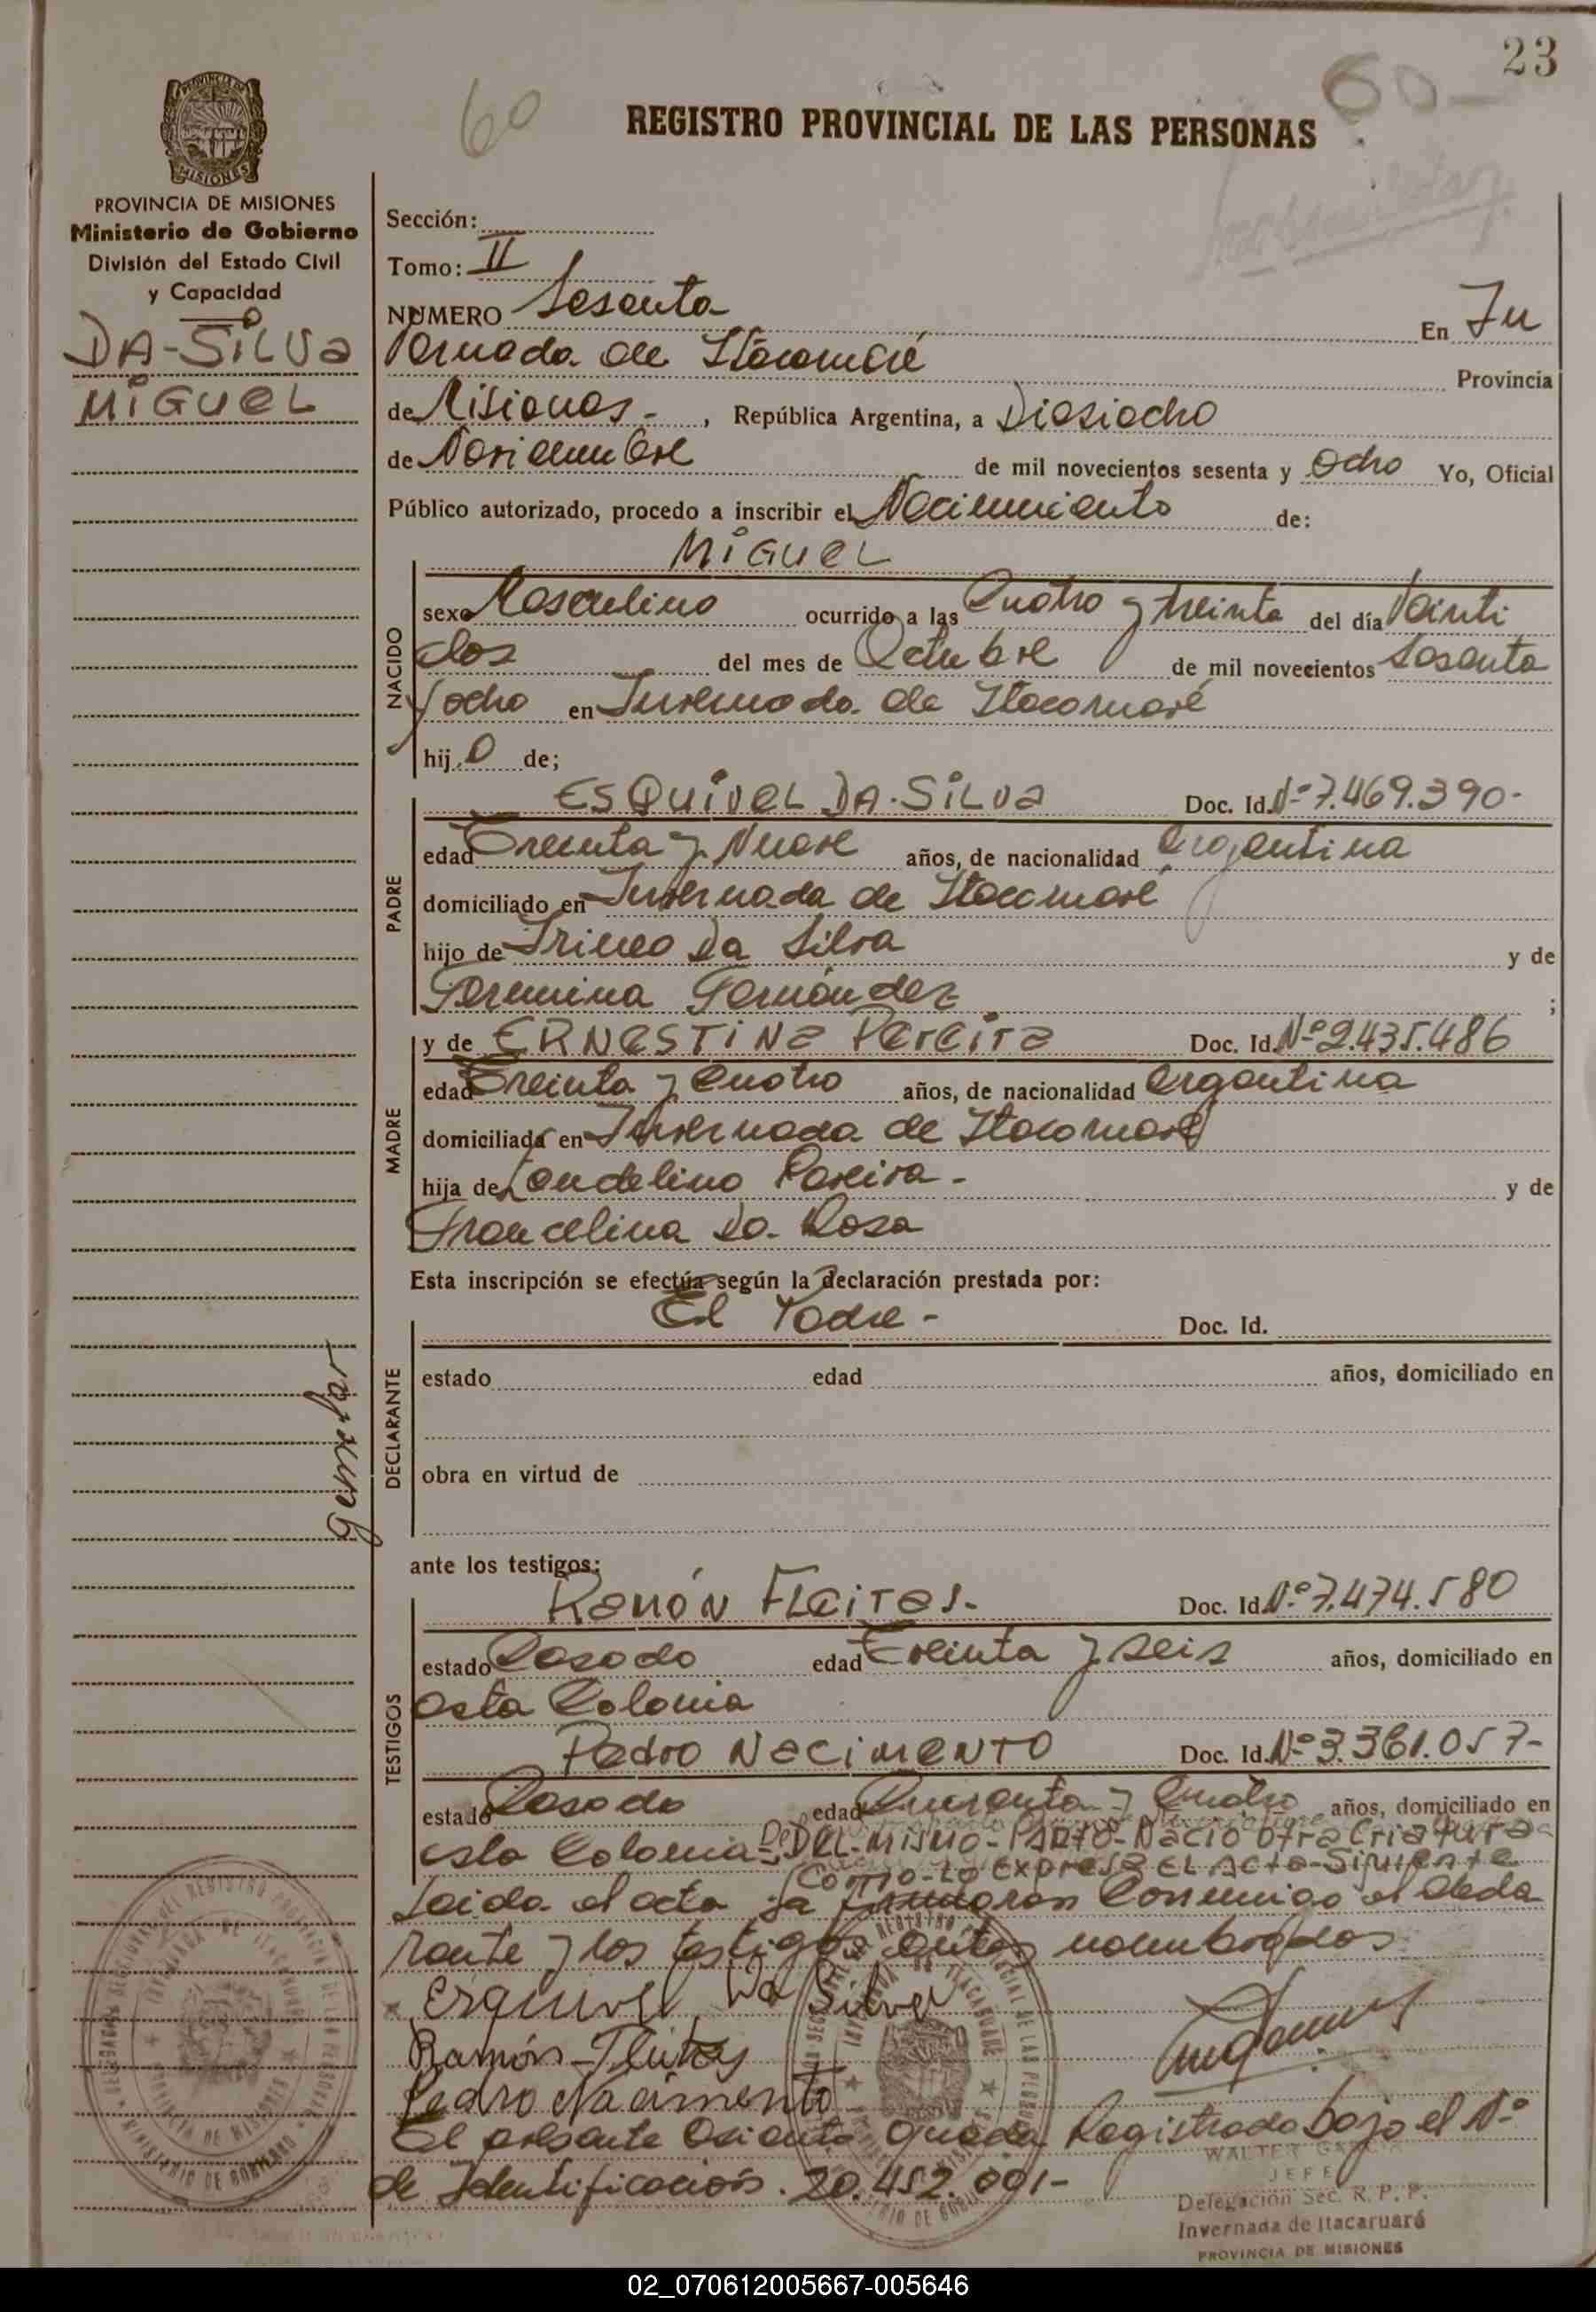 23
60
60-
REGISTRO PROVINCIAL DE LAS PERSONAS
PROVINCIA DE MISIONES
Ministerio de Gobierno
División del Estado Civil
y Capacidad
DA-SiLVa
MiGUeL
Sección:
Tomo: II
NUMERO Sesenta En In
vernada de Itacaruaré Provincia
de Misiones-, República Argentina, a Diesiocho
de Noviembre de mil novecientos sesenta y ocho Yo, Oficial
Público autorizado, procedo a inscribir el Nacimiento de:
NACIDO
MiGUeL
sexo Masculino ocurrido a las Cuatro y treinta del día Veinti
dos del mes de Octubre de mil novecientos Sesenta
y ocho en Invernada de Itacaruaré
hijo de;
PADRE
ESQUiVeL DA-SiLVa Doc. Id. Nº 7.469.390-
edad Treinta y Nueve años, de nacionalidad Argentina
domiciliado en Invernada de Itacaruaré
hijo de Irineo Da Silva y de
Fermina Fernández ;
MADRE
y de ERNeSTiNa Pereira Doc. Id. Nº 2.435.486
edad Treinta y Cuatro años, de nacionalidad Argentina
domiciliada en Invernada de Itacaruaré
hija de Landelino Pareira - y de
Francelina Da Rosa
Esta inscripción se efectúa según la declaración prestada por:
DECLARANTE
El Padre - Doc. Id.
estado edad años, domiciliado en
obra en virtud de
gemelar
ante los testigos:
TESTIGOS
Ramón FLeiTas- Doc. Id. Nº 7.474.580
estado Casado edad Treinta y seis años, domiciliado en
esta Colonia
Pedro NaciMeNTO Doc. Id. Nº 3.361.057-
estado Casado edad Cuarenta y Cuatro años, domiciliado en
esta Colonia- DeL-Mismo-Parto-Nacio Otra Criatura
Como-Lo expresa EL Acta-Siguiente
Leida el acta la firmaron Conmigo el decla
rante y los testigos antes nombrados
Esquivel Da Silva
Ramón Fleitas
Pedro Nacimento
El presente Asiento queda Registrado bajo el Nº
de Identificación. 20.452.091-
WALTER GARCIA
JEFE
Delegación Sec. R. P. P.
Invernada de Itacaruaré
PROVINCIA DE MISIONES
02_070612005667-005646